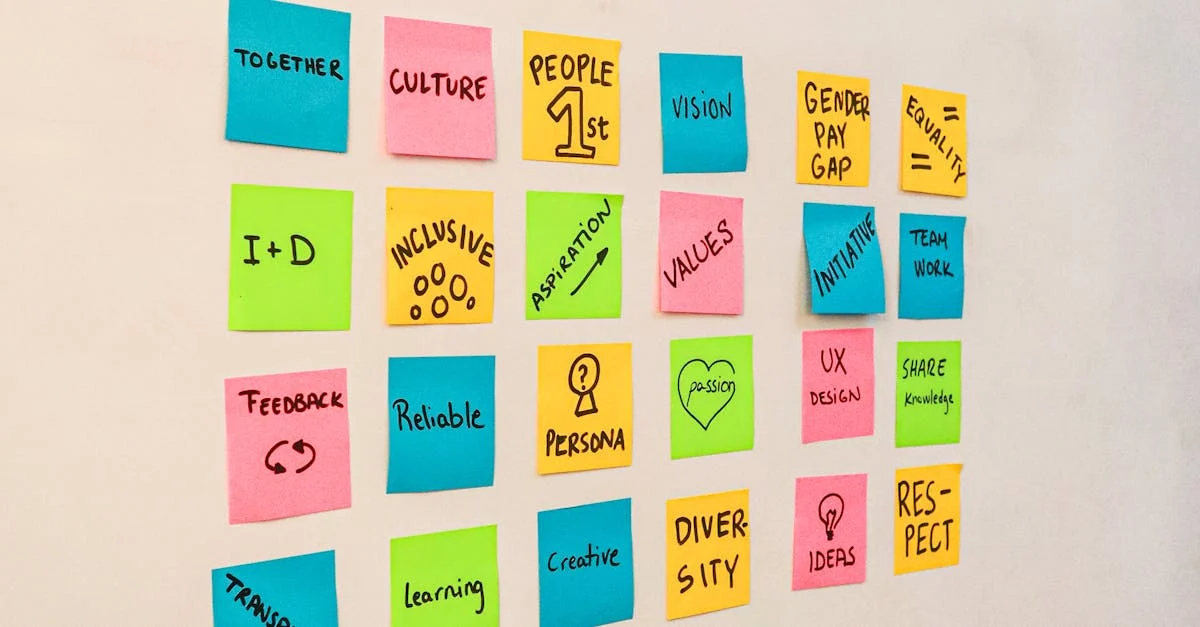 TOGETHER
CULTURE
PEOPLE
1st
VISION
GENDER
PAY
GAP
EQUALITY
I+D
INCLUSIVE
ASPIRATION
VALUES
INITIATIVE
TEAM
WORK
FEEDBACK
Reliable
?
PERSONA
passion
UX
DESIGN
SHARE
Knowledge
Learning
Creative
DIVER-
SITY
IDEAS
RES-
PECT